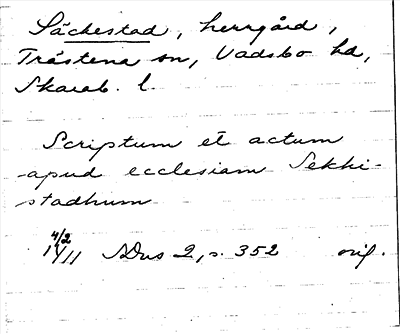 Säckestad, herrgård,
Tråstena sn, Vadsbo hd,
Skarab. l.
Scriptum et actum
apud ecclesiam Sekki-
stadhum
4/2
1411 SDns 2, s. 352 orig.